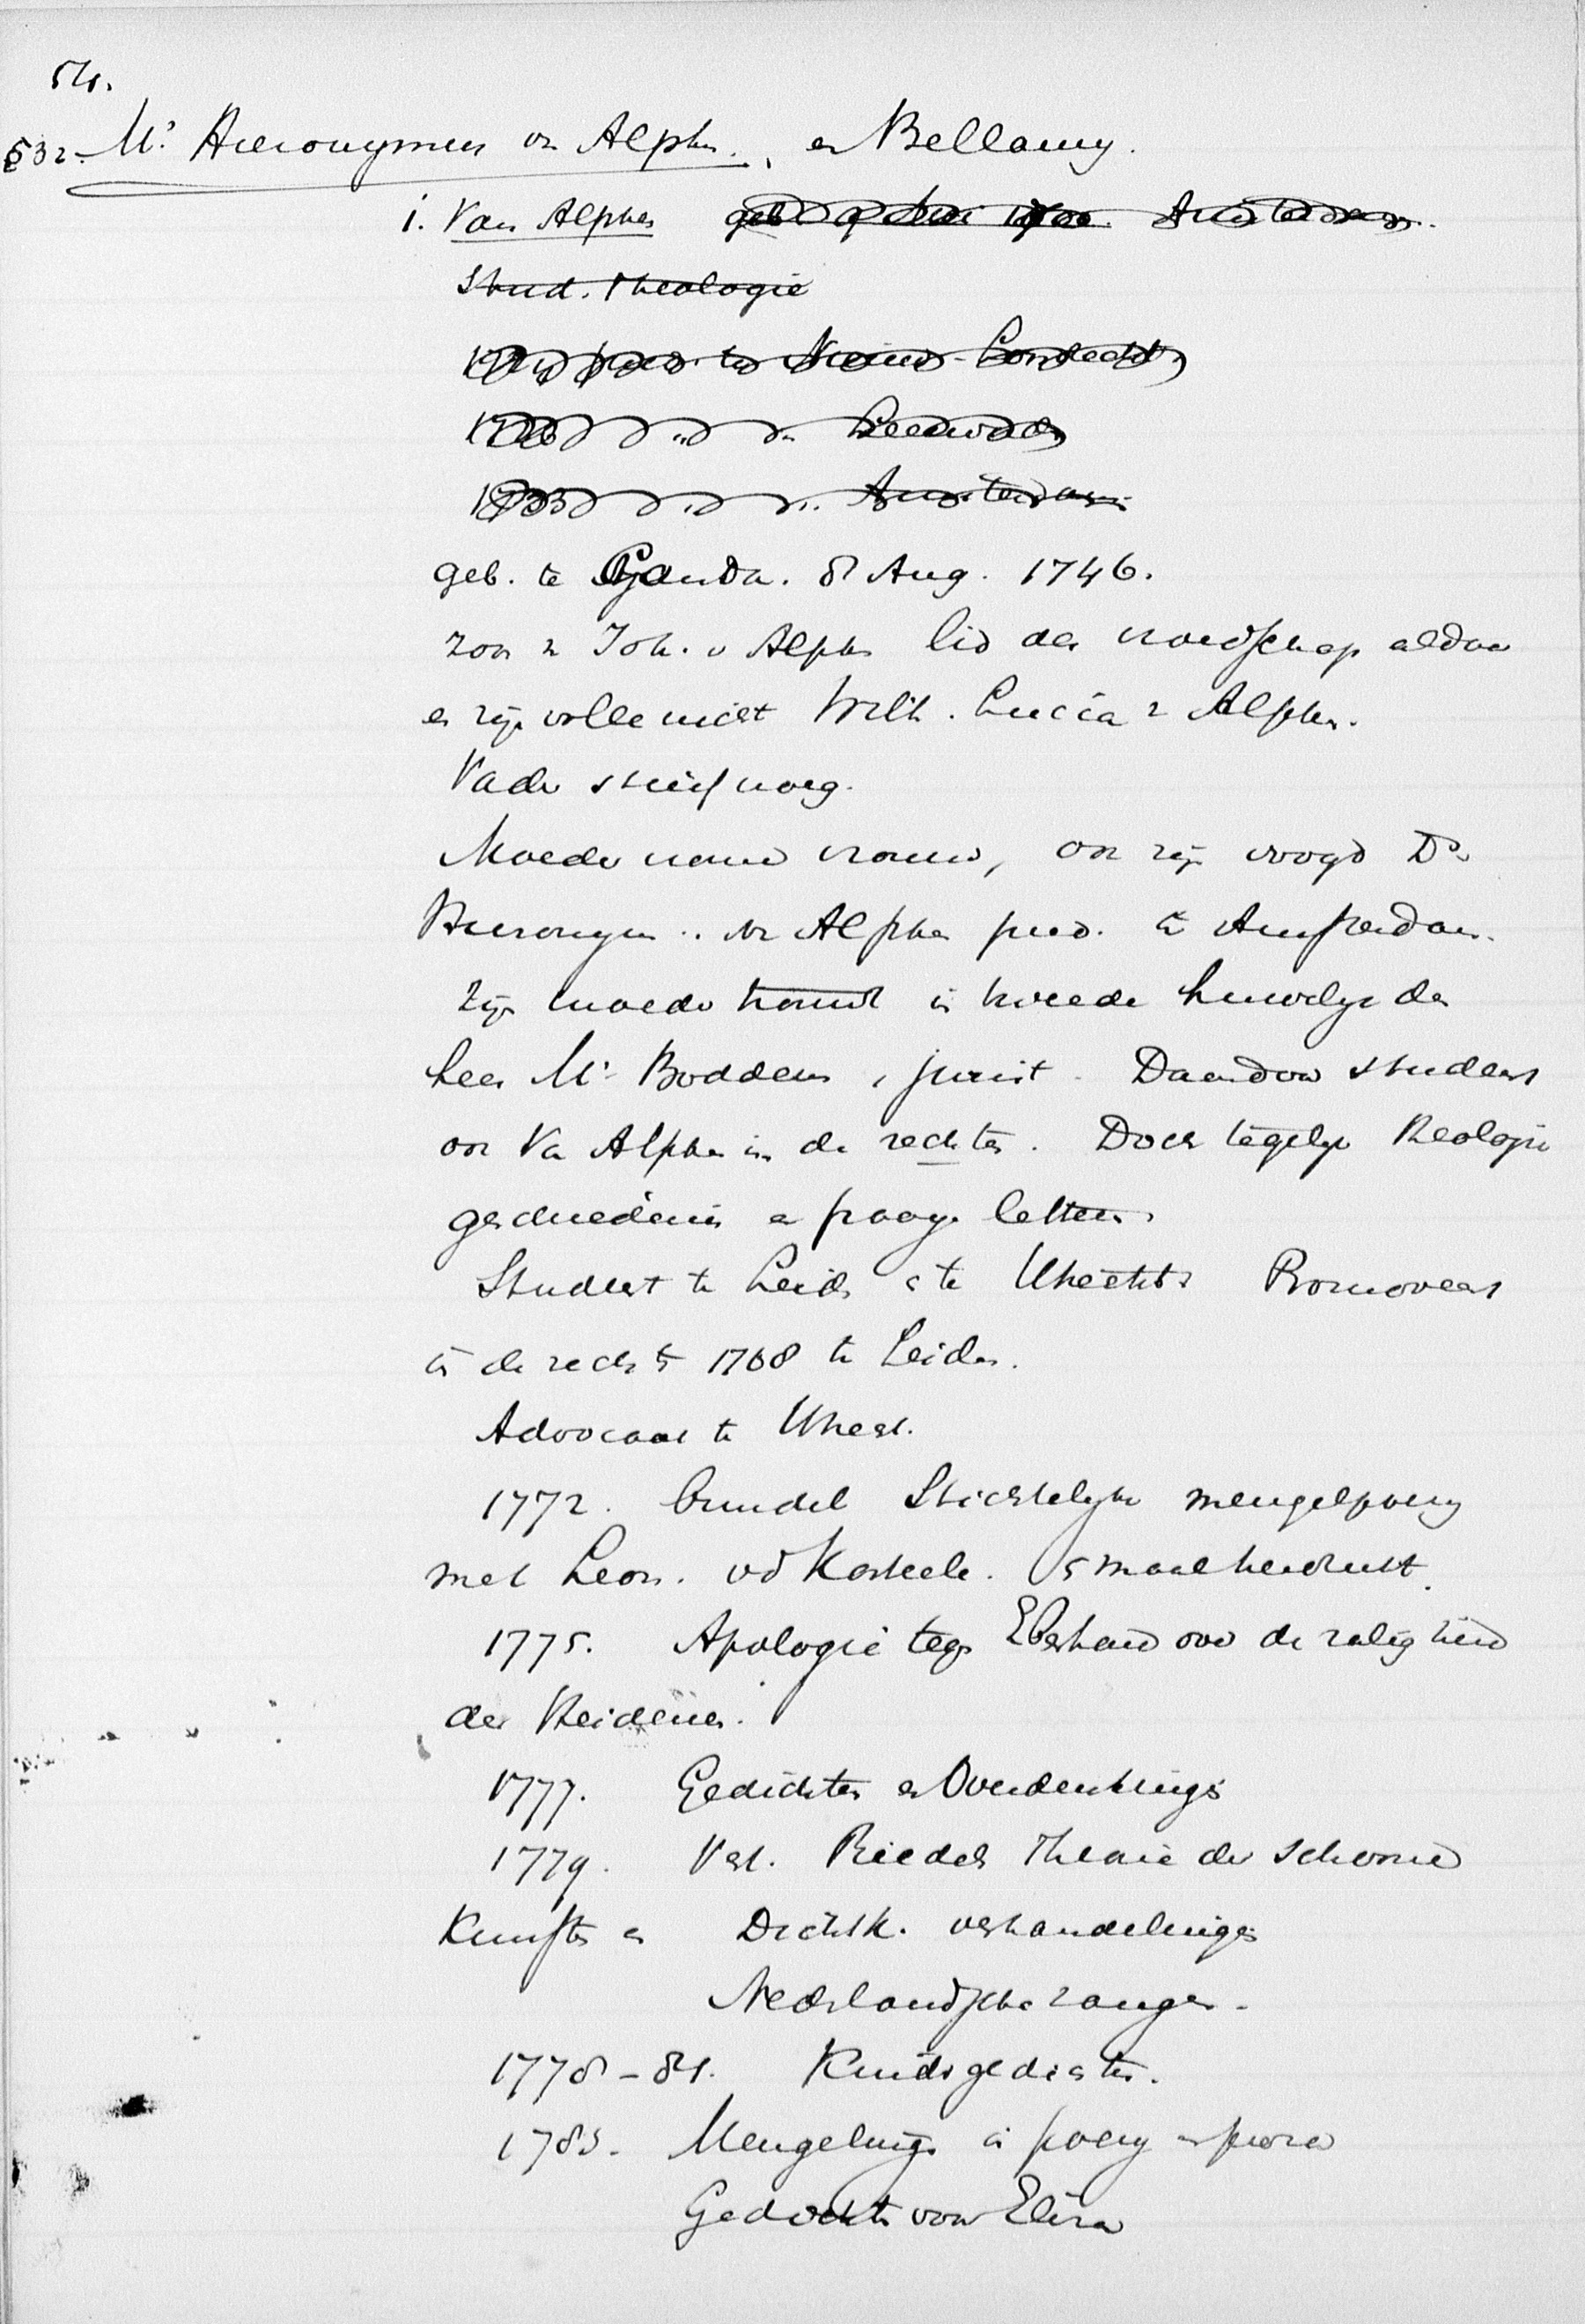 54.
§32. Mr. Hieronymus vn Alphn., en Bellamy.
1. Van Alphen geb. Amsterdam.
Stud. Theologie
pred. te Nieuw-Loosdrecht
Leeuward
1733 Amsterdam
geb. te Gouda. 8 Aug. 1746.
zoon v Joh. v Alphn lid der vroedschap aldaar
en zijn volle nicht Wilh. Lucia v Alphn.
Vader stierf vroeg.
Moeder vrome vrouw, en zijn voogd Ds
Hieronym. vn Alphen pred. te Amsterdam.
Zijn moeder kwam in tweede huwelijk den
heer Mr. Boddens, jurist. Daardoor studeert
ook Vn Alphen in de rechten. Doch tegelijk Theologie
geschiedenis en fraaye letteren.
Studeert te Leiden en te Utrecht. Promoveert
in de rechten 1768 te Leiden.
Advocaat te Utrecht.
1772. bundel Stichtelijke mengelpoezy
met Leon. vd Kasteele. 5 maal herdrukt.
1775. Apologie tegn Eberhard over de zaligheid
der Heidenen.
1777. Gedichten en Overdenkings
1779. Vert. Riedels Theorie der schoone
Kunsten en Dichtk. verhandelingen
Nederlandsche zangen.
1778-84. Kindergedichten.
1783. Mengelings in poezy en proza
Gedicht voor Eliza